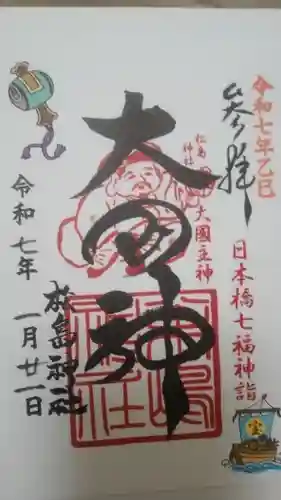 令和七年乙巳
奉拝
日本橋七福神詣
松島
神社
大國主神
大国神
松島神社
令和七年 一月廿一日
宝